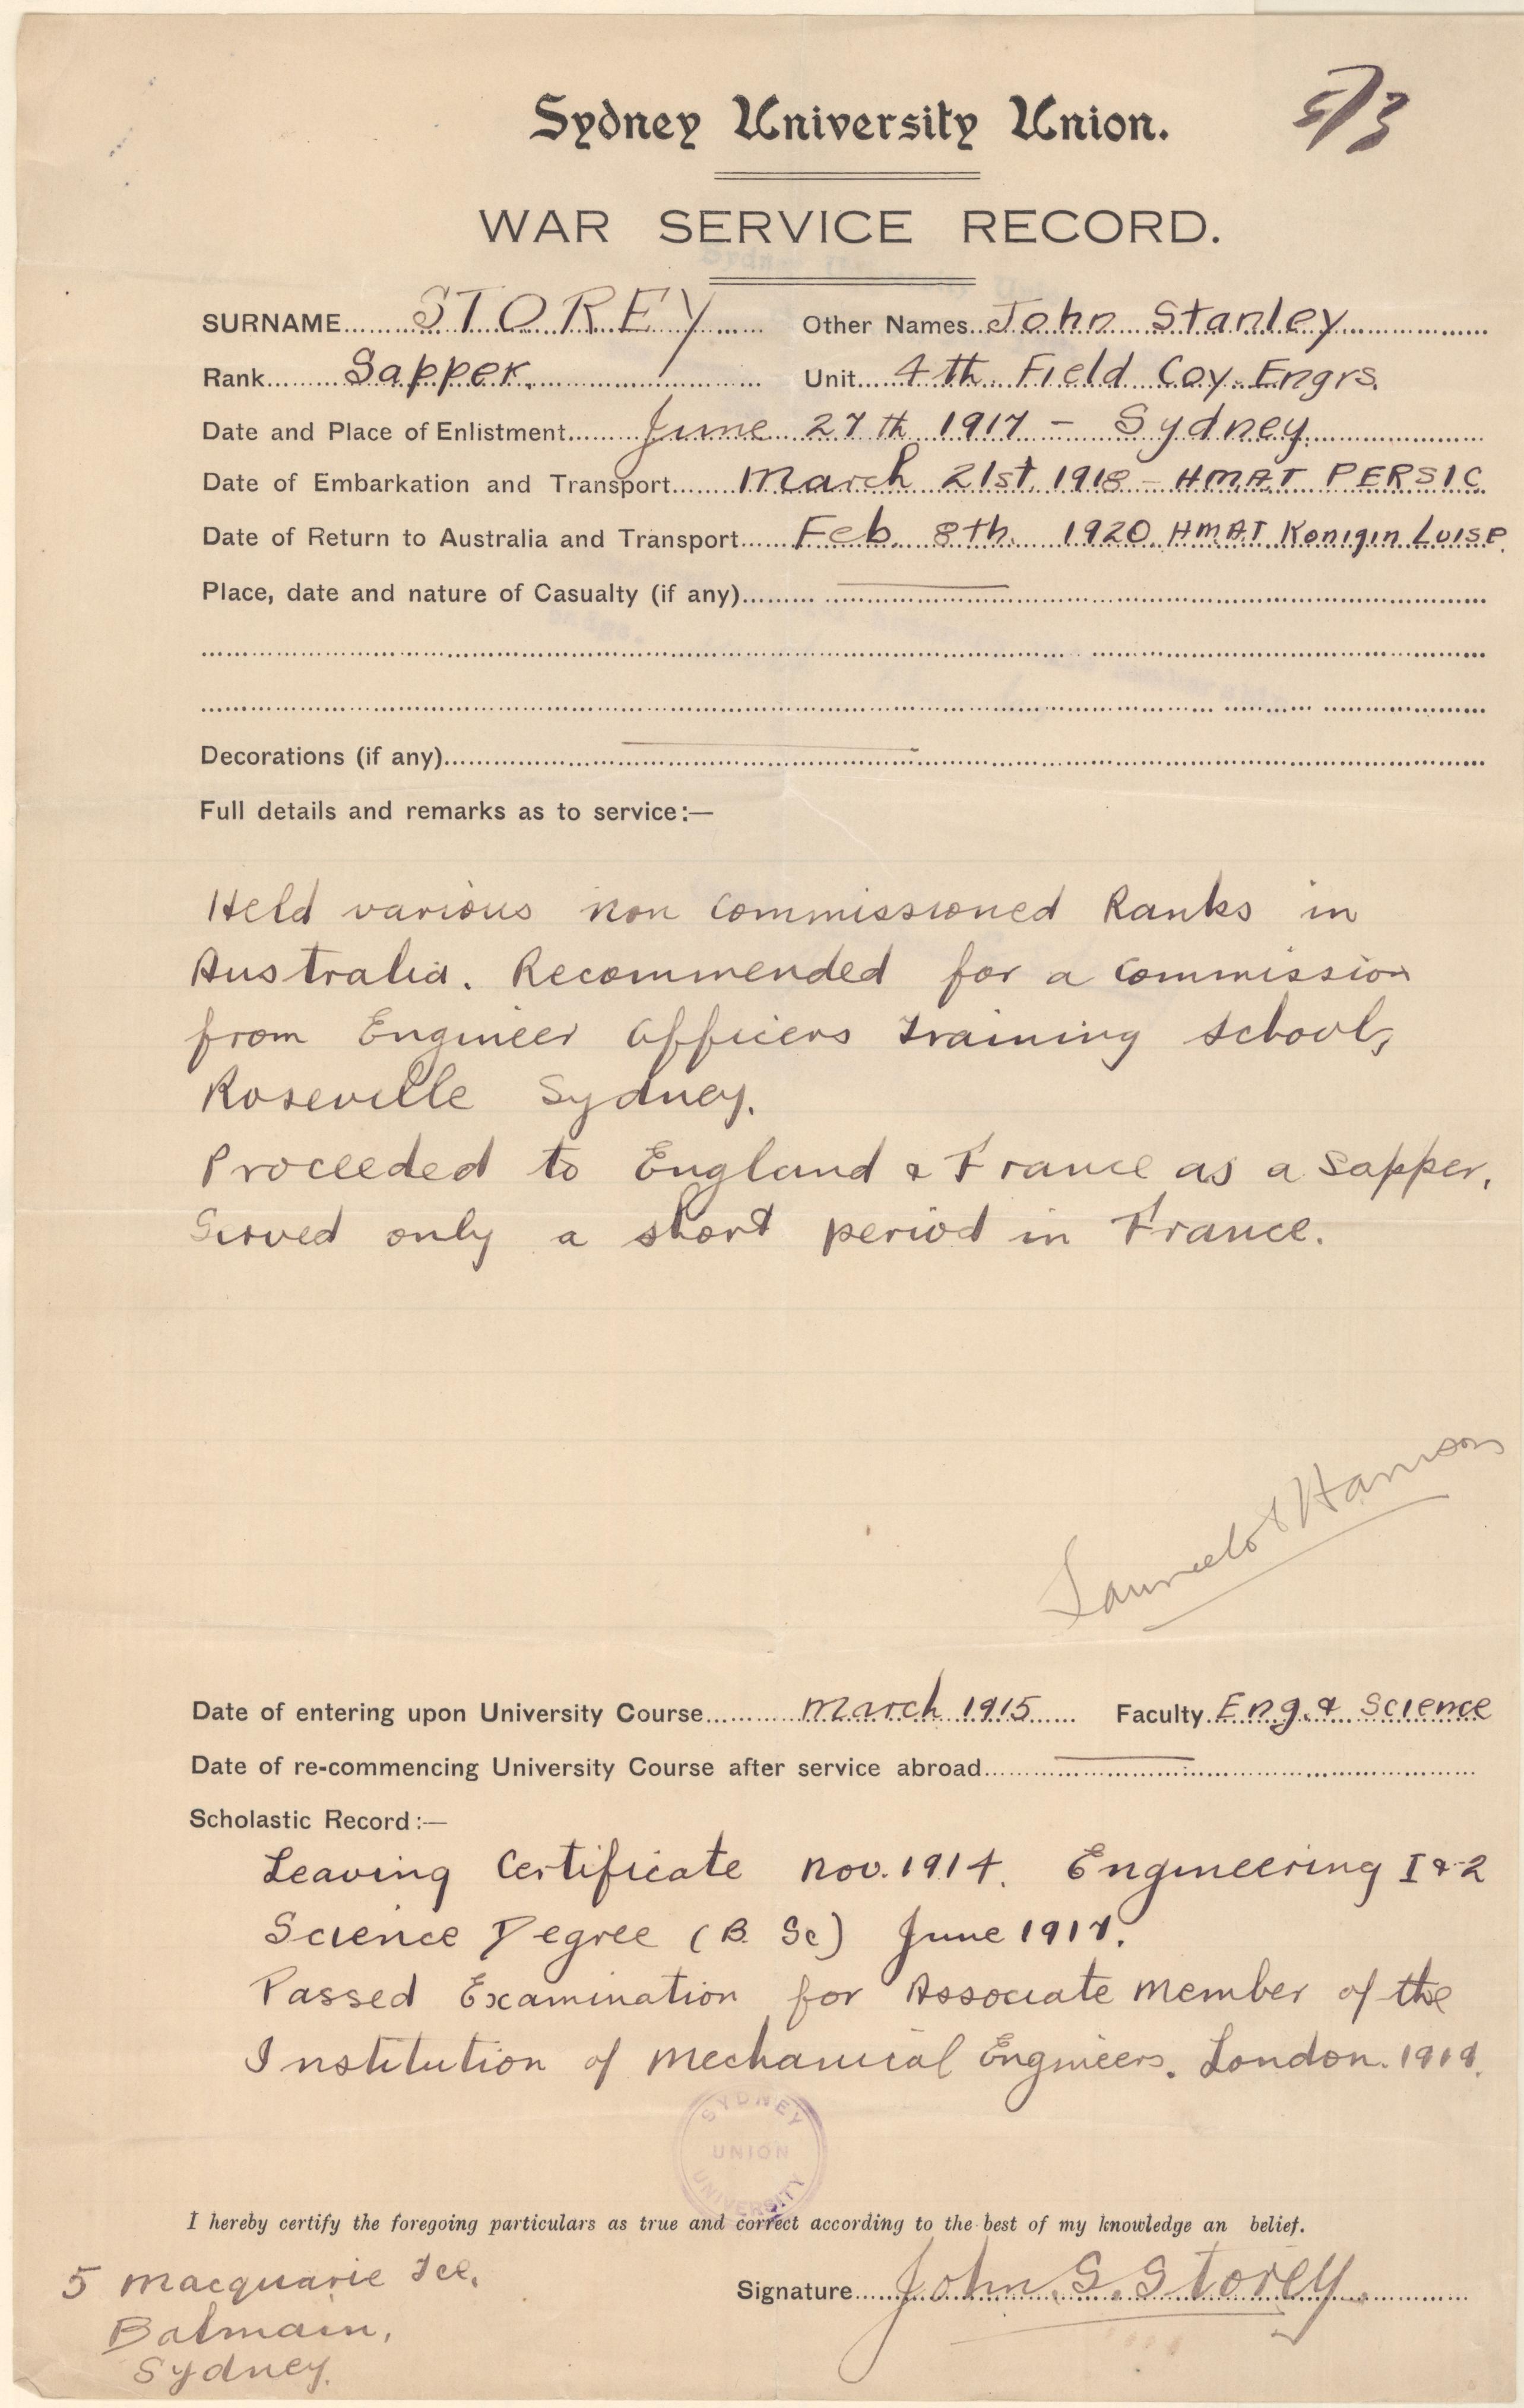 Sydney University Union.
5/3
WAR SERVICE RECORD.
SURNAME STOREY Other Names John Stanley
Rank Sapper. Unit 4th Field Coy. Engrs.
Date and Place of Enlistment June 27th 1917 - Sydney
Date of Embarkation and Transport March 21st 1918 - HMAT PERSIC
Date of Return to Australia and Transport Feb. 8th. 1920 HMAT Konigin Luise.
Place, date and nature of Casualty (if any) ———
Decorations (if any) ———
Full details and remarks as to service:—
Held various non Commissioned Ranks in
Australia. Recommended for a Commission
from Engineer Officers Training School,
Roseville Sydney.
Proceeded to England & France as a Sapper.
Served only a short period in France.
Launcelot Harrison
Date of entering upon University Course March 1915 Faculty Eng. & Science
Date of re-commencing University Course after service abroad ———
Scholastic Record:—
Leaving Certificate Nov. 1914. Engineering I & 2
Science Degree (B. Sc) June 1917.
Passed Examination for Associate Member of the
Institution of Mechanical Engineers. London. 1919.
SYDNEY
UNION
UNIVERSITY
I hereby certify the foregoing particulars as true and correct according to the best of my knowledge an belief.
5 Macquarie Tce,
Signature John. S. Storey.
Balmain,
Sydney.